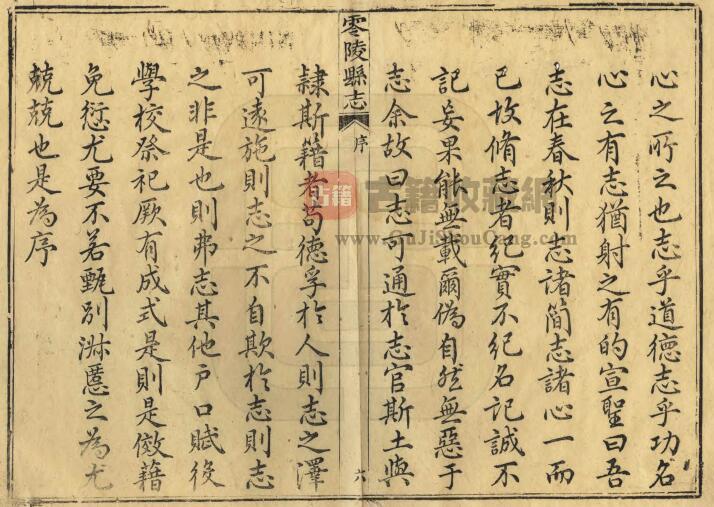 心之所之也志乎道德志乎功名
心之有志猶射之有的宣聖曰吾
志在春秋則志諸簡志諸心一而
已故脩志者紀實不紀名記誠不
記妄果能無載爾偽自然無惡于
志余故曰志可通於志官斯土與
零陵縣志
序
六
隸斯籍者苟德孚於人則志之澤
可遠施則志之不自欺於志則志
之非是也則弗志其他戶口賦役
學校祭祀厥有成式是則是傚藉
免愆尤要不若甄別淑慝之為尤
兢兢也是為序
古籍
古籍收藏網
www.GuJiShouCang.com